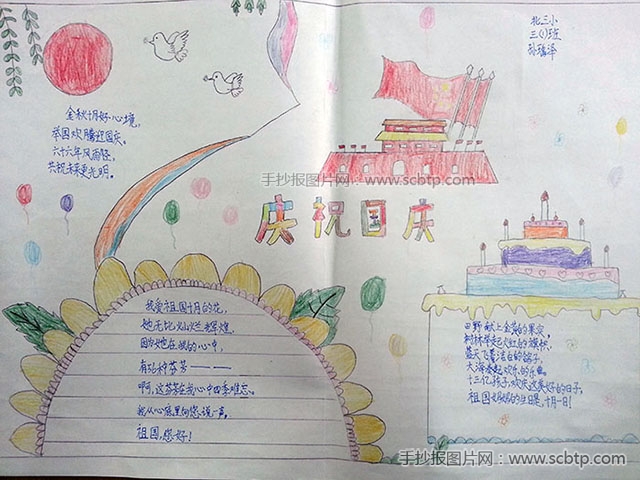 北三小
三(1)班
孙瑞泽
金秋十月好心境,
举国欢腾迎国庆。
六十六年风雨路,
共祝未来更光明。
手抄报图片网:www.scbtp.com
庆祝国庆
我爱祖国十月的花,
她无比灿烂辉煌,
因为她在我的心中,
有程种芬芳———
啊,这芬芳在我心中四季难忘。
我从心底里向您说一声,
祖国,您好!
田野献上金黄的果实,
树林举起火红的旗帜,
蓝天飞着洁白的鸽子,
大海奏起欢乐的乐曲。
十三亿孩子,欢庆这美好的日子,
祖国妈妈的生日是,十月一日!
手抄报图片网:www.scbtp.com